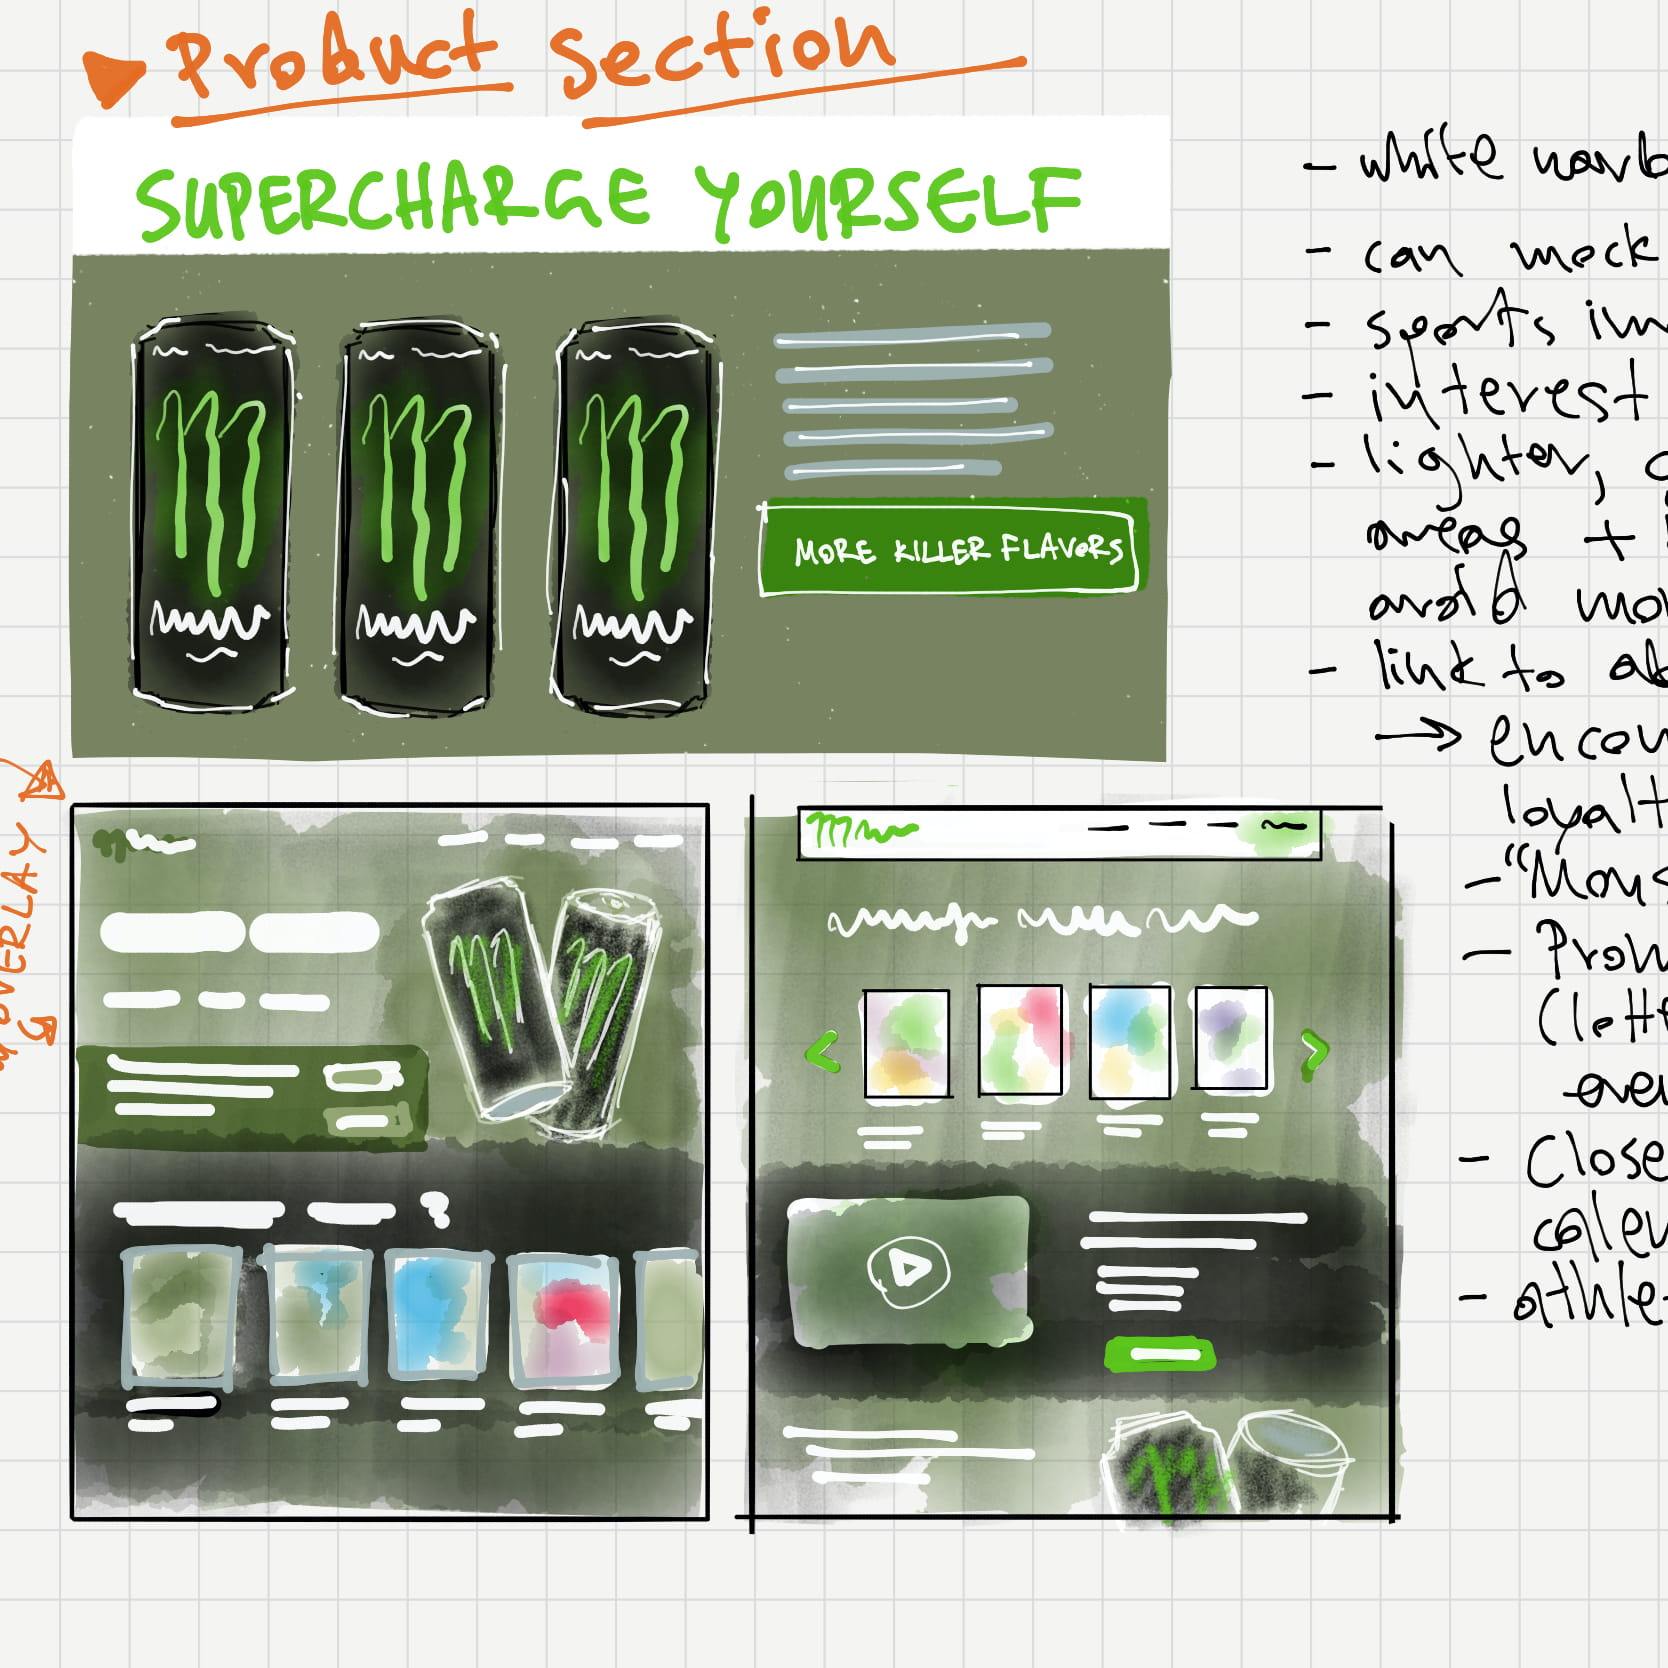 Product Section
SUPERCHARGE YOURSELF
MORE KILLER FLAVORS
OVERLAY
- white navb
- can mock
- sports im
- interest
- lighter,
areas +
avoid mo
- link to ab
→ encou
loyalt
- "Mons
- Prom
(
over
- Close
athle